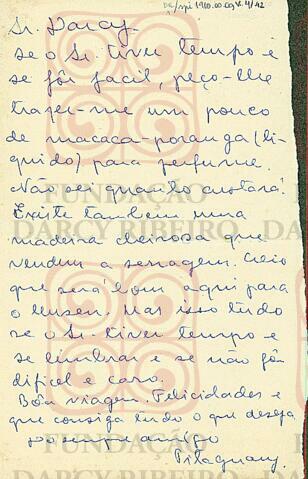 Sr. Darcy
se o Sr. tiver tempo e
se fôr facil, peço-lhe
trazer-me um pouco
de macaca-poranga (li-
quido) para perfume.
Não sei quanto custará.
Existe tambem uma
madeira cheirosa que
vendem a serragem. Creio
que será bom aqui para
o lensen. Mas isso tudo
se o Sr. tiver tempo e
se lembrar e se não fôr
dificel e caro.
Bôa viagem. Felicidades e
que consiga tudo o que deseja
sempre amigo
Pitaguary
FUNDAÇÃO
DARCY RIBEIRO